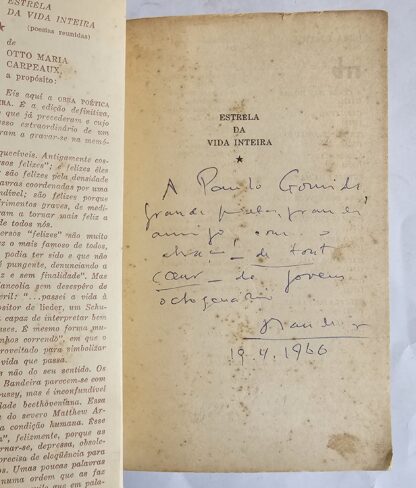 ESTRÊLA
DA VIDA INTEIRA
(poesias reunidas)
de
OTTO MARIA
CARPEAUX,
a propósito:
Eis aqui a OBRA POÉTICA
IRA. É a edição definitiva,
que já precederam e cujo
sso extraordinário de um
ram a gravar-se na memó-
quecíveis. Antigamente cos-
rsos felizes"; e felizes êles
são felizes pela densidade
avras coordenadas por uma
ndível; são felizes porque
rimentos graves, de medi-
ram a tornar mais feliz a
de todos nós.
ersos "felizes" não muito
z o mais famoso de todos,
podia ter sido e que não
pungente, denunciando a
e sem finalidade". Mas
ancolia sem desespêro de
eril: "...passei a vida à
ositor de lieder, um Schu-
capaz de interpretar bem
sses. É mesmo forma „mu-
nhos correndo", em que o
proveitado para simbolizar
vida que passa.
as no seu sentido. Os
Bandeira parecem-se com
ussy, mas é inconfundível
idade beethoveniana. Essa
do severo Matthew Ar-
a condição humana. Essa
a", felizmente, porque as
ornar-se, depressa, obsole-
precisa de eloqüência para
Umas poucas palavras
numa ordem que as faz
ESTRÊLA
DA
VIDA INTEIRA
★
A Paulo Gomide,
grande poeta, grande
amigo, com o
abraço – de tout
cœur – do jovem
octogenário
Bandeira
19.4.1966